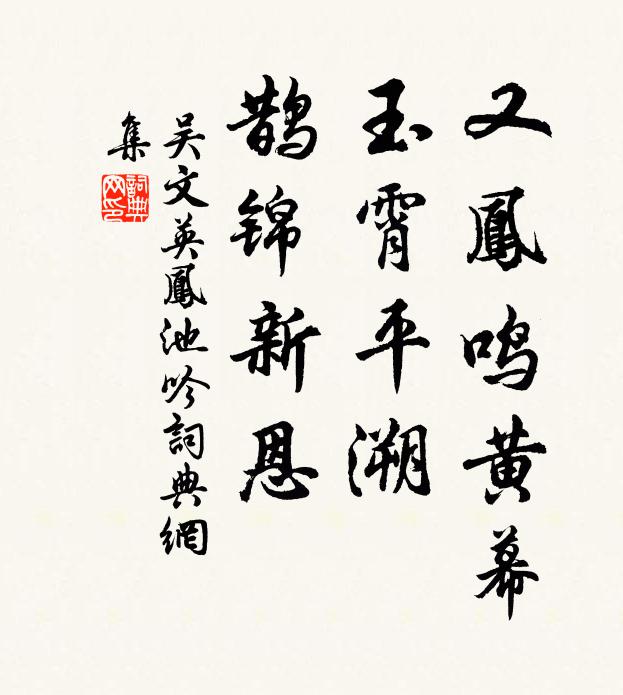 又鳳鸣黄幕
玉霄平溯
鹊锦新恩
吴文英鳳池吟詞典網
集
詞典
网印